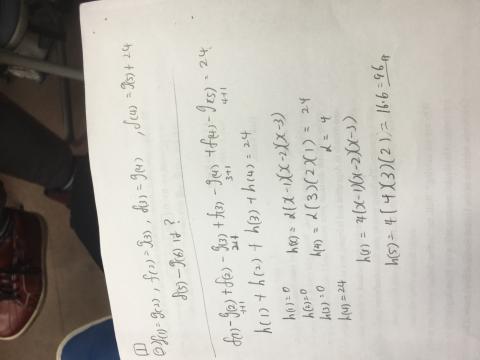 [1]
② f(1)=g(2), f(2)=g(3), f(3)=g(4), f(4)=g(5)+24
f(5)-g(6) は?
f(1)-g(2)+f(2)-g(3)+f(3)-g(4)+f(4)-g(5)=24
1+1 2+1 3+1 4+1
h(1)+h(2)+h(3)+h(4)=24
h(1)=0
h(2)=0
h(3)=0
h(4)=24
h(x)=α(x-1)(x-2)(x-3)
h(4)=α(3)(2)(1)=24
α=4
h(x)=4(x-1)(x-2)(x-3)
h(5)=4(4)(3)(2)=16·6=96